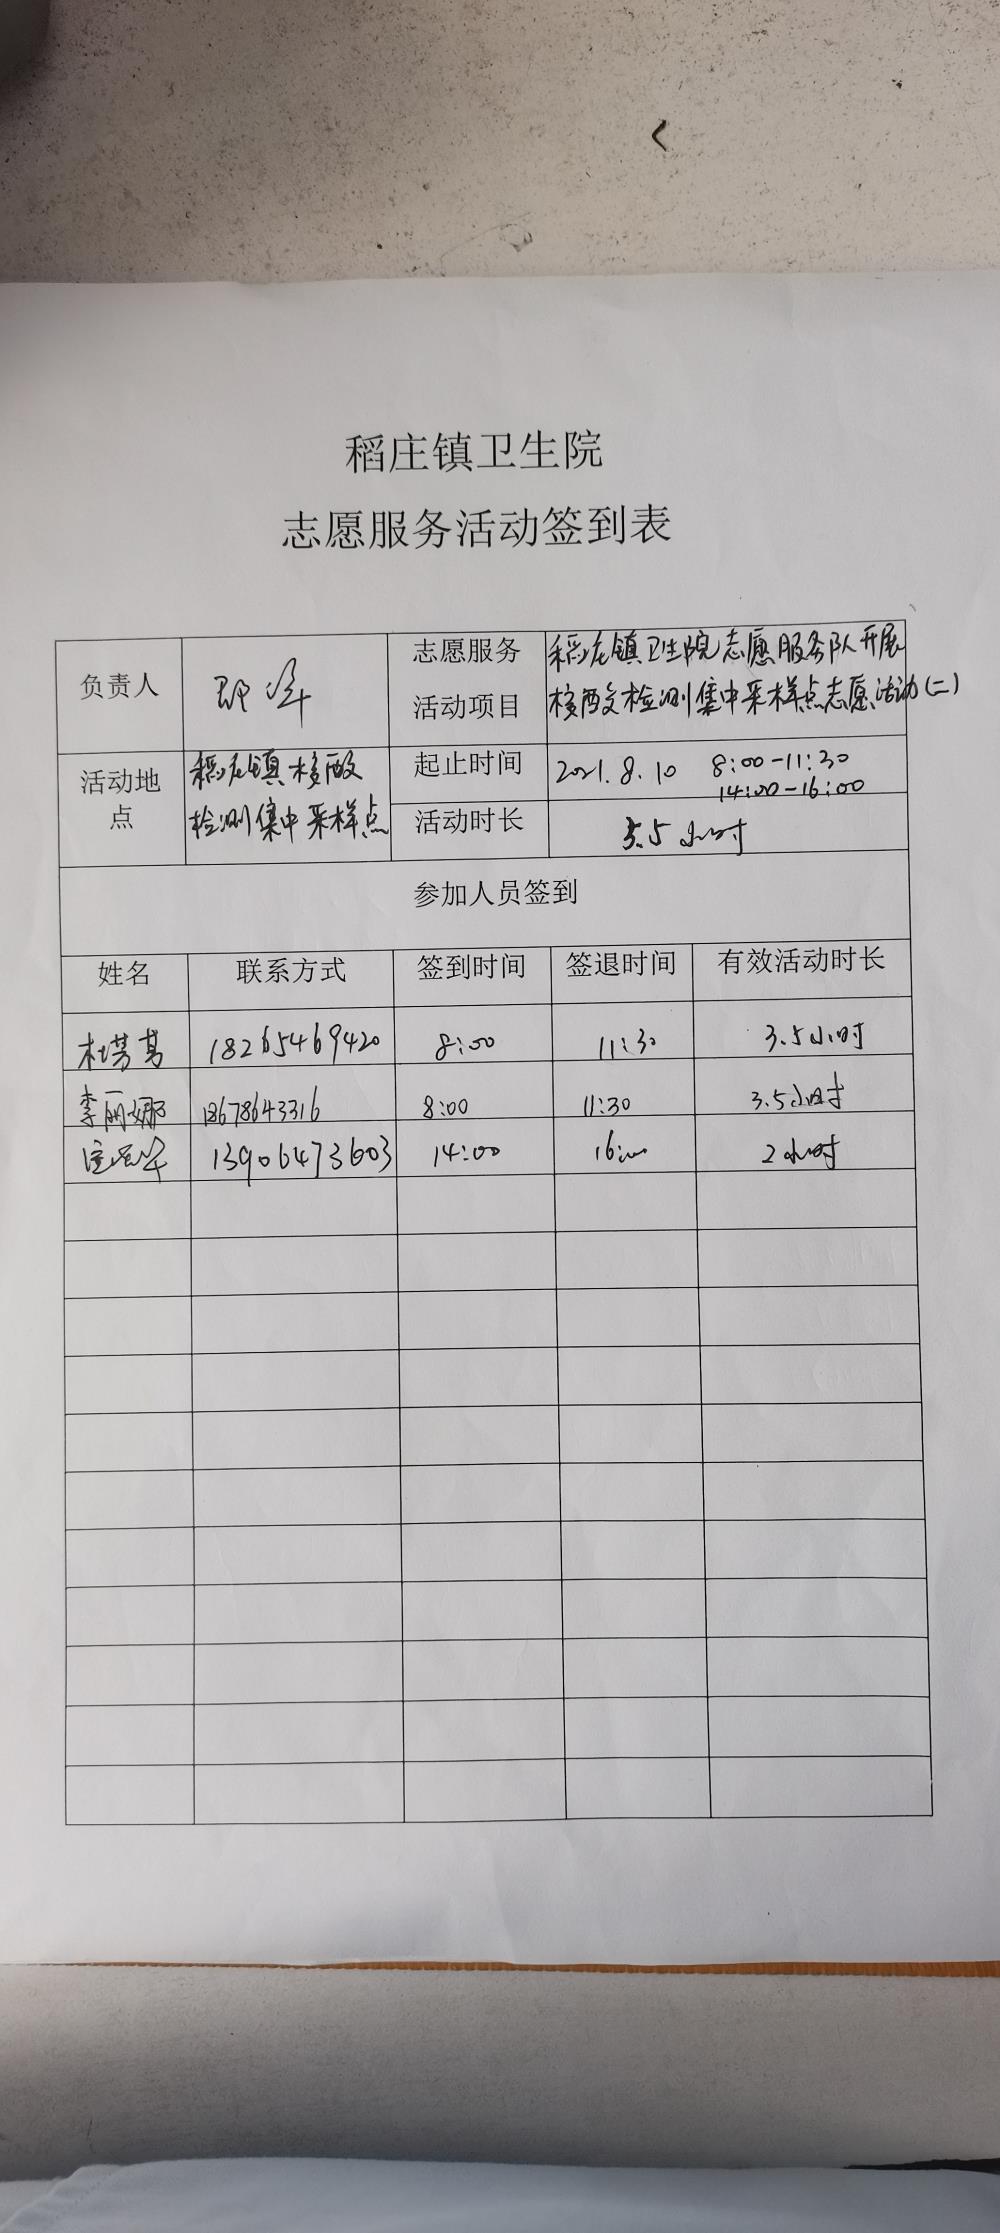 稻庄镇卫生院
志愿服务活动签到表
负责人
志愿服务
活动项目
稻庄镇卫生院志愿服务队开展
核酸检测集中采样点志愿活动(二)
活动地
点
稻庄镇核酸
检测集中采样点
起止时间
2021.8.10 8:00-11:30
14:00-16:00
活动时长
5.5小时
参加人员签到
姓名 联系方式 签到时间 签退时间 有效活动时长
杜芳 18265469420 8:00 11:30 3.5小时
李丽娜 18678643316 8:00 11:30 3.5小时
13906473603 14:00 16:00 2小时